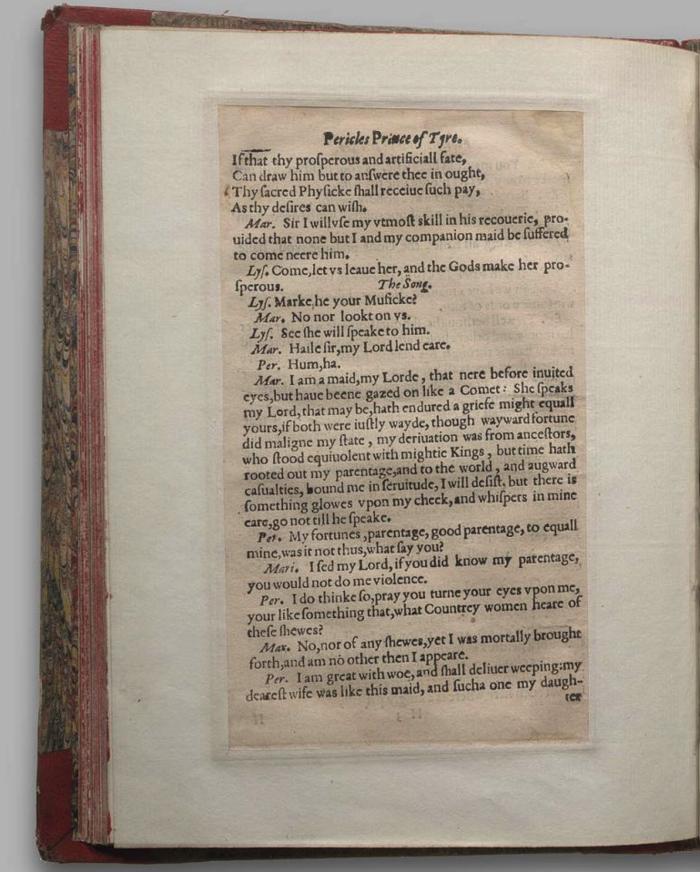 Pericles Prince of Tyre.
If that thy prosperous and artificiall fate,
Can draw him but to answere thee in ought,
Thy sacred Physicke shall receiue such pay,
As thy desires can wish.
Mar. Sir I will vse my vtmost skill in his recouerie, pro-
uided that none but I and my companion maid be suffered
to come neere him.
Lys. Come, let vs leaue her, and the Gods make her pro-
sperous. The Song.
Lys. Marke he your Musicke?
Mar. No nor lookt on vs.
Lys. See she will speake to him.
Mar. Haile sir, my Lord lend eare.
Per. Hum, ha.
Mar. I am a maid, my Lorde, that nere before inuited
eyes, but haue beene gazed on like a Comet: She speaks
my Lord, that may be, hath endured a griefe might equall
yours, if both were iustly wayde, though wayward fortune
did maligne my state, my deriuation was from ancestors,
who stood equiuolent with mightie Kings, but time hath
rooted out my parentage, and to the world, and augward
casualties, bound me in seruitude, I will desist, but there is
something glowes vpon my cheek, and whispers in mine
eare, go not till he speake.
Per. My fortunes, parentage, good parentage, to equall
mine, was it not thus, what say you?
Mari. I sed my Lord, if you did know my parentage,
you would not do me violence.
Per. I do thinke so, pray you turne your eyes vpon me,
your like something that, what Countrey women heare of
these shewes?
Mar. No, nor of any shewes, yet I was mortally brought
forth, and am no other then I appeare.
Per. I am great with woe, and shall deliuer weeping: my
dearest wife was like this maid, and such a one my daugh-
ter